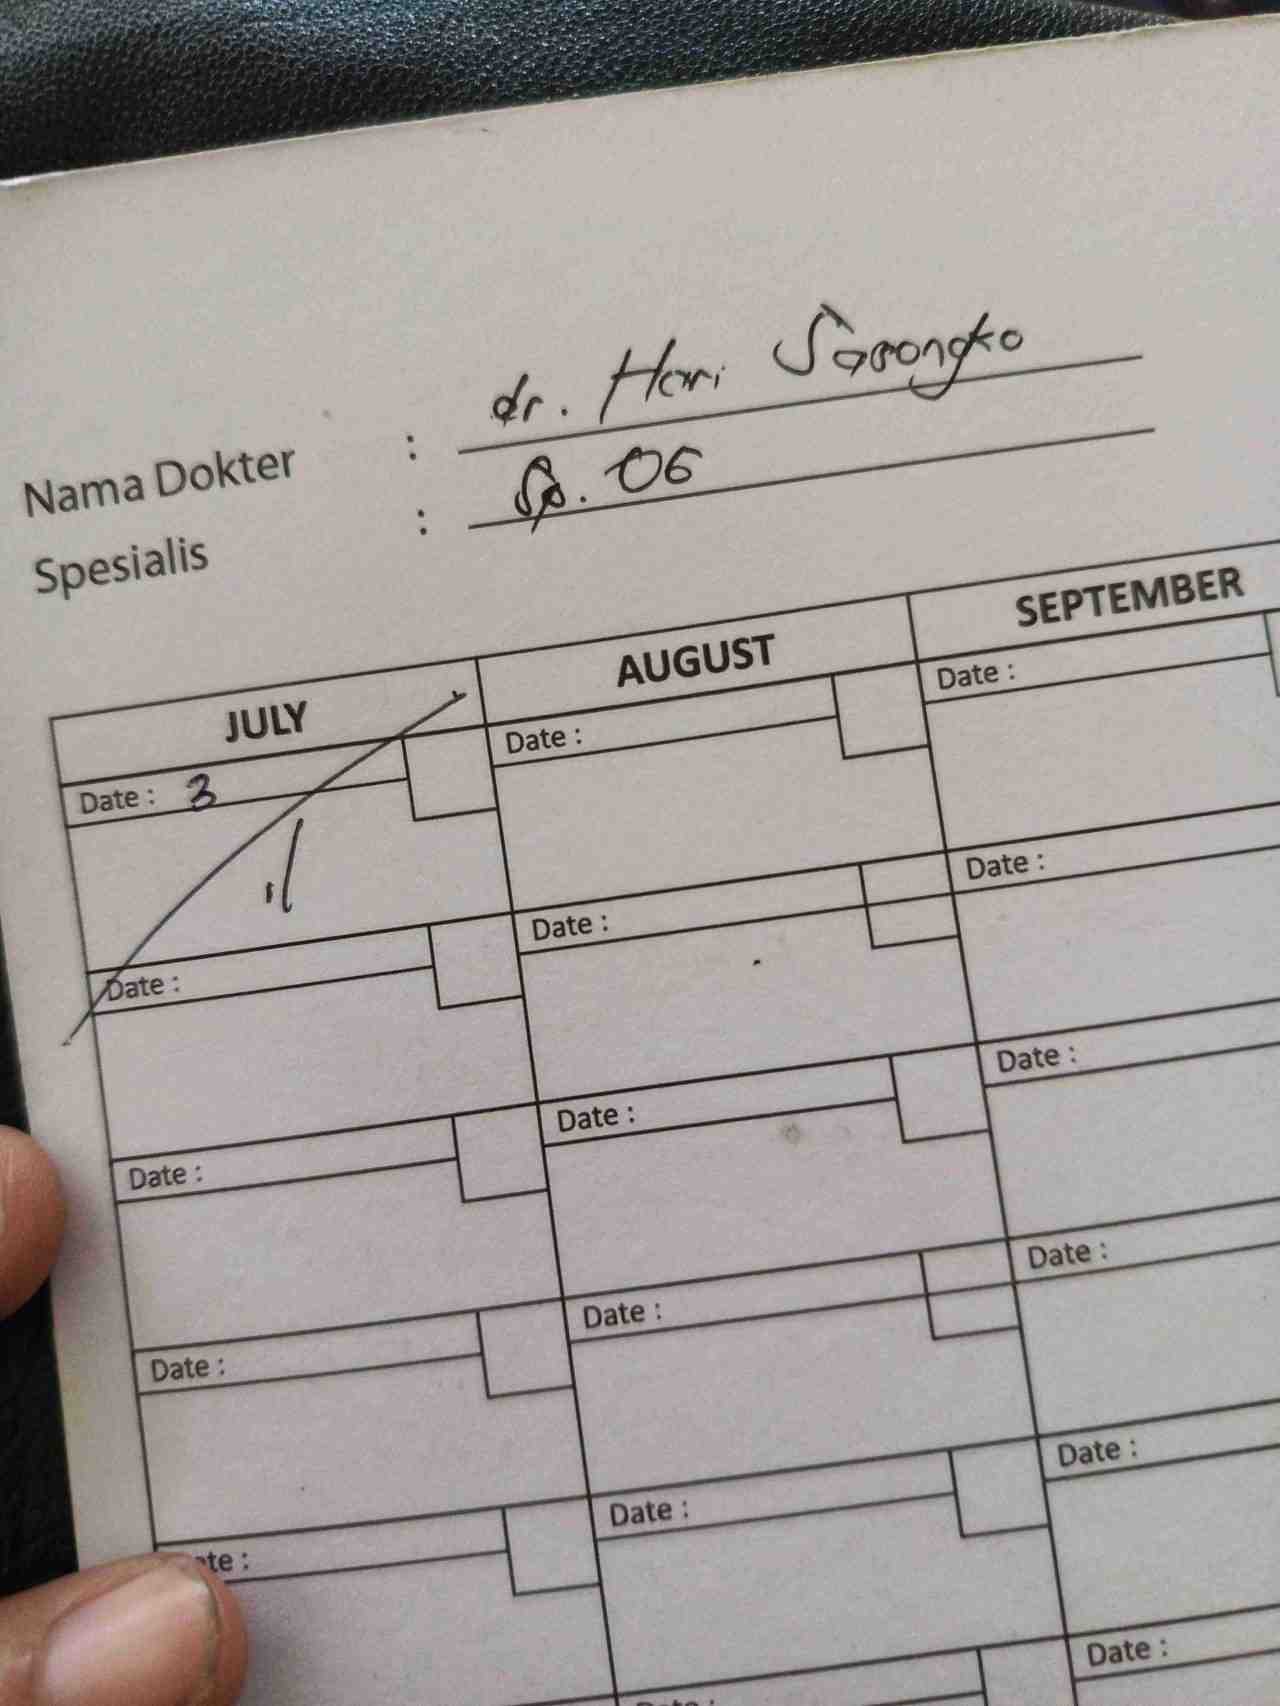 Nama Dokter : dr. Hari Sasongko
Spesialis : Sp. OG
JULY AUGUST SEPTEMBER
Date : 3 Date : Date :
Date : Date : Date :
Date : Date : Date :
Date : Date : Date :
Date : Date :
Date :